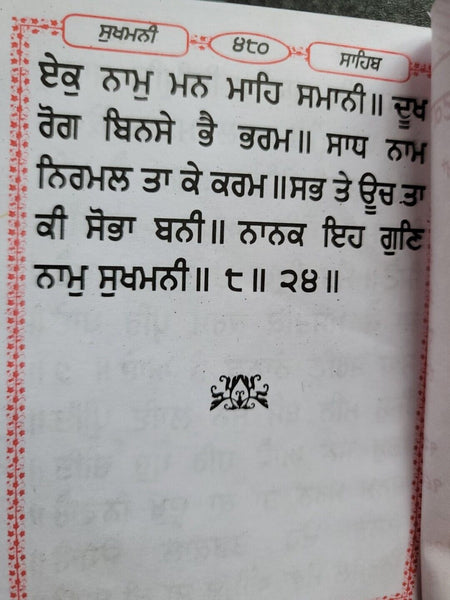 ਸੁਖਮਨੀ ੪੮੦ ਸਾਹਿਬ
ਏਕੁ ਨਾਮੁ ਮਨ ਮਾਹਿ ਸਮਾਨੀ॥ ਦੂਖ
ਰੋਗ ਬਿਨਸੇ ਭੈ ਭਰਮ॥ ਸਾਧ ਨਾਮ
ਨਿਰਮਲ ਤਾ ਕੇ ਕਰਮ॥ਸਭ ਤੇ ਊਚ ਤਾ
ਕੀ ਸੋਭਾ ਬਨੀ॥ ਨਾਨਕ ਇਹ ਗੁਣਿ
ਨਾਮੁ ਸੁਖਮਨੀ॥ ੮॥ ੨੪॥